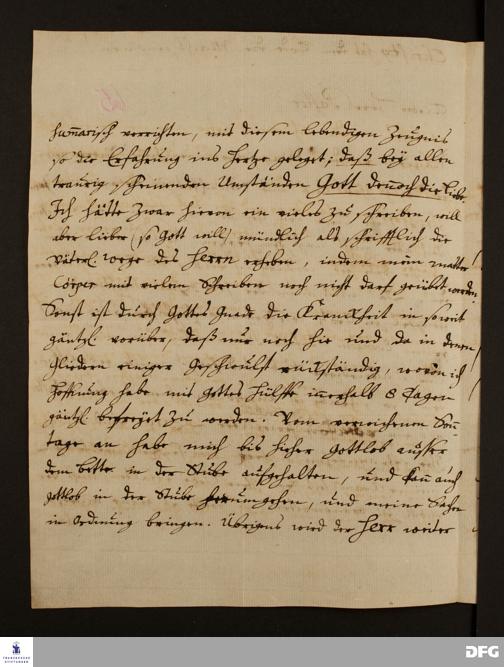 summarisch verrichten, mit diesem lebendigen Zeugnis
so die Erfahrung ins Hertze geleget; daß bey allen
traurig scheinenden Umständen Gott dennoch die Liebe.
Ich hätte zwar hiervon ein vieles zu schreiben, will
aber lieber (so Gott will) mündlich als schrifftlich die
väterl. Wege des Herrn erheben, indem mein matter
Cörper mit vielem Schreiben noch nicht darf geübet werden
Sonst ist durch Gottes Gnade die Kranckheit in so weit
gäntzl. vorüber, daß nur noch hie und da in denen
Gliedern einiger Geschwulst rückständig, wovon ich
Hoffnung habe mit Gottes Hülffe innerhalb 8 Tagen
gäntzl. befreyet zu werden. Vom verwichenen Son-
tage an habe mich bis hieher gottlob ausser
dem bette in der Stube aufgehalten, und kan auch
gottlob in der Stube herumgehen, und meine Sachen
in Ordnung bringen. Übrigens wird der Herr weiter
FRANCKESCHE STIFTUNGEN
DFG